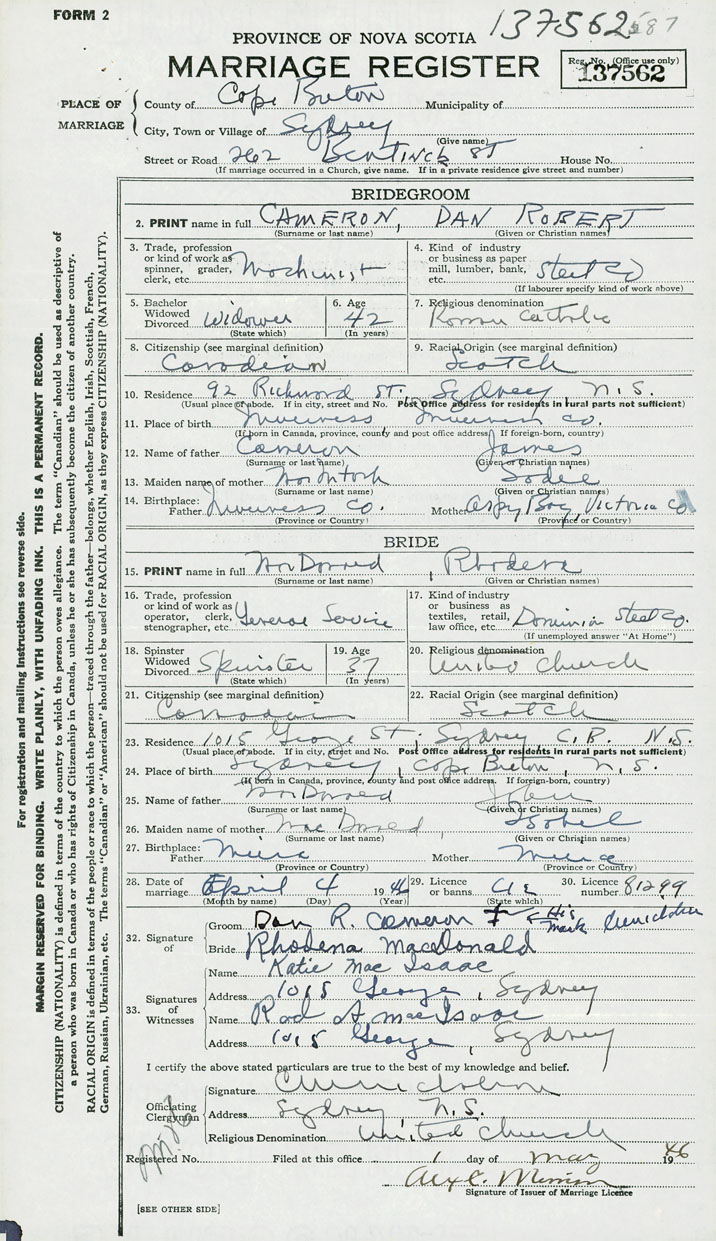 FORM 2
137562 587
PROVINCE OF NOVA SCOTIA
MARRIAGE REGISTER
Reg. No. (Office use only)
137562
PLACE OF MARRIAGE
County of Cape Breton Municipality of
City, Town or Village of Sydney
(Give name)
Street or Road 262 Bentinck St House No.
(If marriage occurred in a Church, give name. If in a private residence give street and number)
BRIDEGROOM
2. PRINT name in full CAMERON, DAN ROBERT
(Surname or last name) (Given or Christian names)
3. Trade, profession or kind of work as spinner, grader, clerk, etc. Machinist
4. Kind of industry or business as paper mill, lumber, bank, etc. Steel Co
(If labourer specify kind of work above)
5. Bachelor Widowed Divorced Widower
(State which)
6. Age 42
(In years)
7. Religious denomination Roman Catholic
8. Citizenship (see marginal definition) Canadian
9. Racial Origin (see marginal definition) Scotch
10. Residence 92 Richmond St. Sydney N.S.
(Usual place of abode. If in city, street and No. Post Office address for residents in rural parts not sufficient)
11. Place of birth Inverness Inverness Co.
(If born in Canada, province, county and post office address. If foreign-born, country)
12. Name of father Cameron James
(Surname or last name) (Given or Christian names)
13. Maiden name of mother MacIntosh Sadie
(Surname or last name) (Given or Christian names)
14. Birthplace: Father Inverness Co. Mother Aspy Bay, Victoria Co
(Province or Country) (Province or Country)
BRIDE
15. PRINT name in full MacDonald, Rhodena
(Surname or last name) (Given or Christian names)
16. Trade, profession or kind of work as operator, clerk, stenographer, etc. General Service
17. Kind of industry or business as textiles, retail, law office, etc. Dominion Steel Co.
(If unemployed answer "At Home")
18. Spinster Widowed Divorced Spinster
(State which)
19. Age 37
(In years)
20. Religious denomination United Church
21. Citizenship (see marginal definition) Canadian
22. Racial Origin (see marginal definition) Scotch
23. Residence 1015 George St. Sydney C.B. N.S.
(Usual place of abode. If in city, street and No. Post Office address for residents in rural parts not sufficient)
24. Place of birth Sydney, Cape Breton, N.S.
(If born in Canada, province, county and post office address. If foreign-born, country)
25. Name of father MacDonald John
(Surname or last name) (Given or Christian names)
26. Maiden name of mother MacDonald, Isobel
(Surname or last name) (Given or Christian names)
27. Birthplace: Father Mira Mother Mira
(Province or Country) (Province or Country)
28. Date of marriage April 4 1946
(Month by name) (Day) (Year)
29. Licence or banns Lic
(State which)
30. Licence number 81299
32. Signature of
Groom Dan R. Cameron X His mark
Bride Rhodena MacDonald
33. Signatures of Witnesses
Name Katie Mac Isaac
Address 1015 George, Sydney
Name Rod A MacIsaac
Address 1015 George, Sydney
I certify the above stated particulars are true to the best of my knowledge and belief.
Officiating Clergyman
Signature
Address Sydney N.S.
Religious Denomination United Church
Registered No. Filed at this office 1 day of May 1946
Signature of Issuer of Marriage Licence
[SEE OTHER SIDE]
For registration and mailing Instructions see reverse side.
MARGIN RESERVED FOR BINDING. WRITE PLAINLY, WITH UNFADING INK. THIS IS A PERMANENT RECORD.
CITIZENSHIP (NATIONALITY) is defined in terms of the country to which the person owes allegiance. The term "Canadian" should be used as descriptive of
a person who was born in Canada or who has rights of Citizenship in Canada, unless he or she has subsequently become the citizen of another country.
RACIAL ORIGIN is defined in terms of the people or race to which the person—traced through the father—belongs, whether English, Irish, Scottish, French,
German, Russian, Ukrainian, etc. The terms "Canadian" or "American" should not be used for RACIAL ORIGIN, as they express CITIZENSHIP (NATIONALITY).